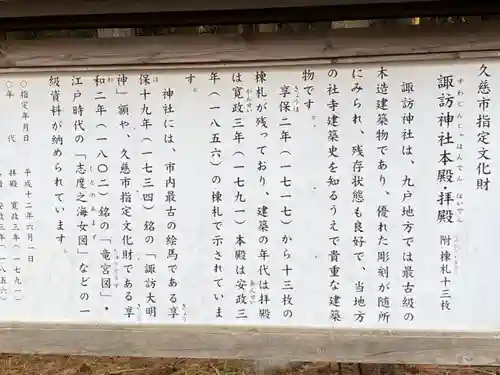 久慈市指定文化財
諏訪神社本殿・拝殿 附棟札十三枚
諏訪神社は、九戸地方では最古級の
木造建築物であり、優れた彫刻が随所
にみられ、残存状態も良好で、当地方
の社寺建築史を知るうえで貴重な建築
物です。
享保二年(一七一七)から十三枚の
棟札が残っており、建築の年代は拝殿
は寛政三年(一七九一)本殿は安政三
年(一八五六)の棟札で示されていま
す。
神社には、市内最古の絵馬である享
保十九年(一七三四)銘の「諏訪大明
神」額や、久慈市指定文化財である享
和二年(一八〇二)銘の「竜宮図」・
江戸時代の「志度之海女図」などの一
級資料が納められています。
○指定年月日 平成十二年六月一日
○年 代 拝殿 寛政三年(一七九一)